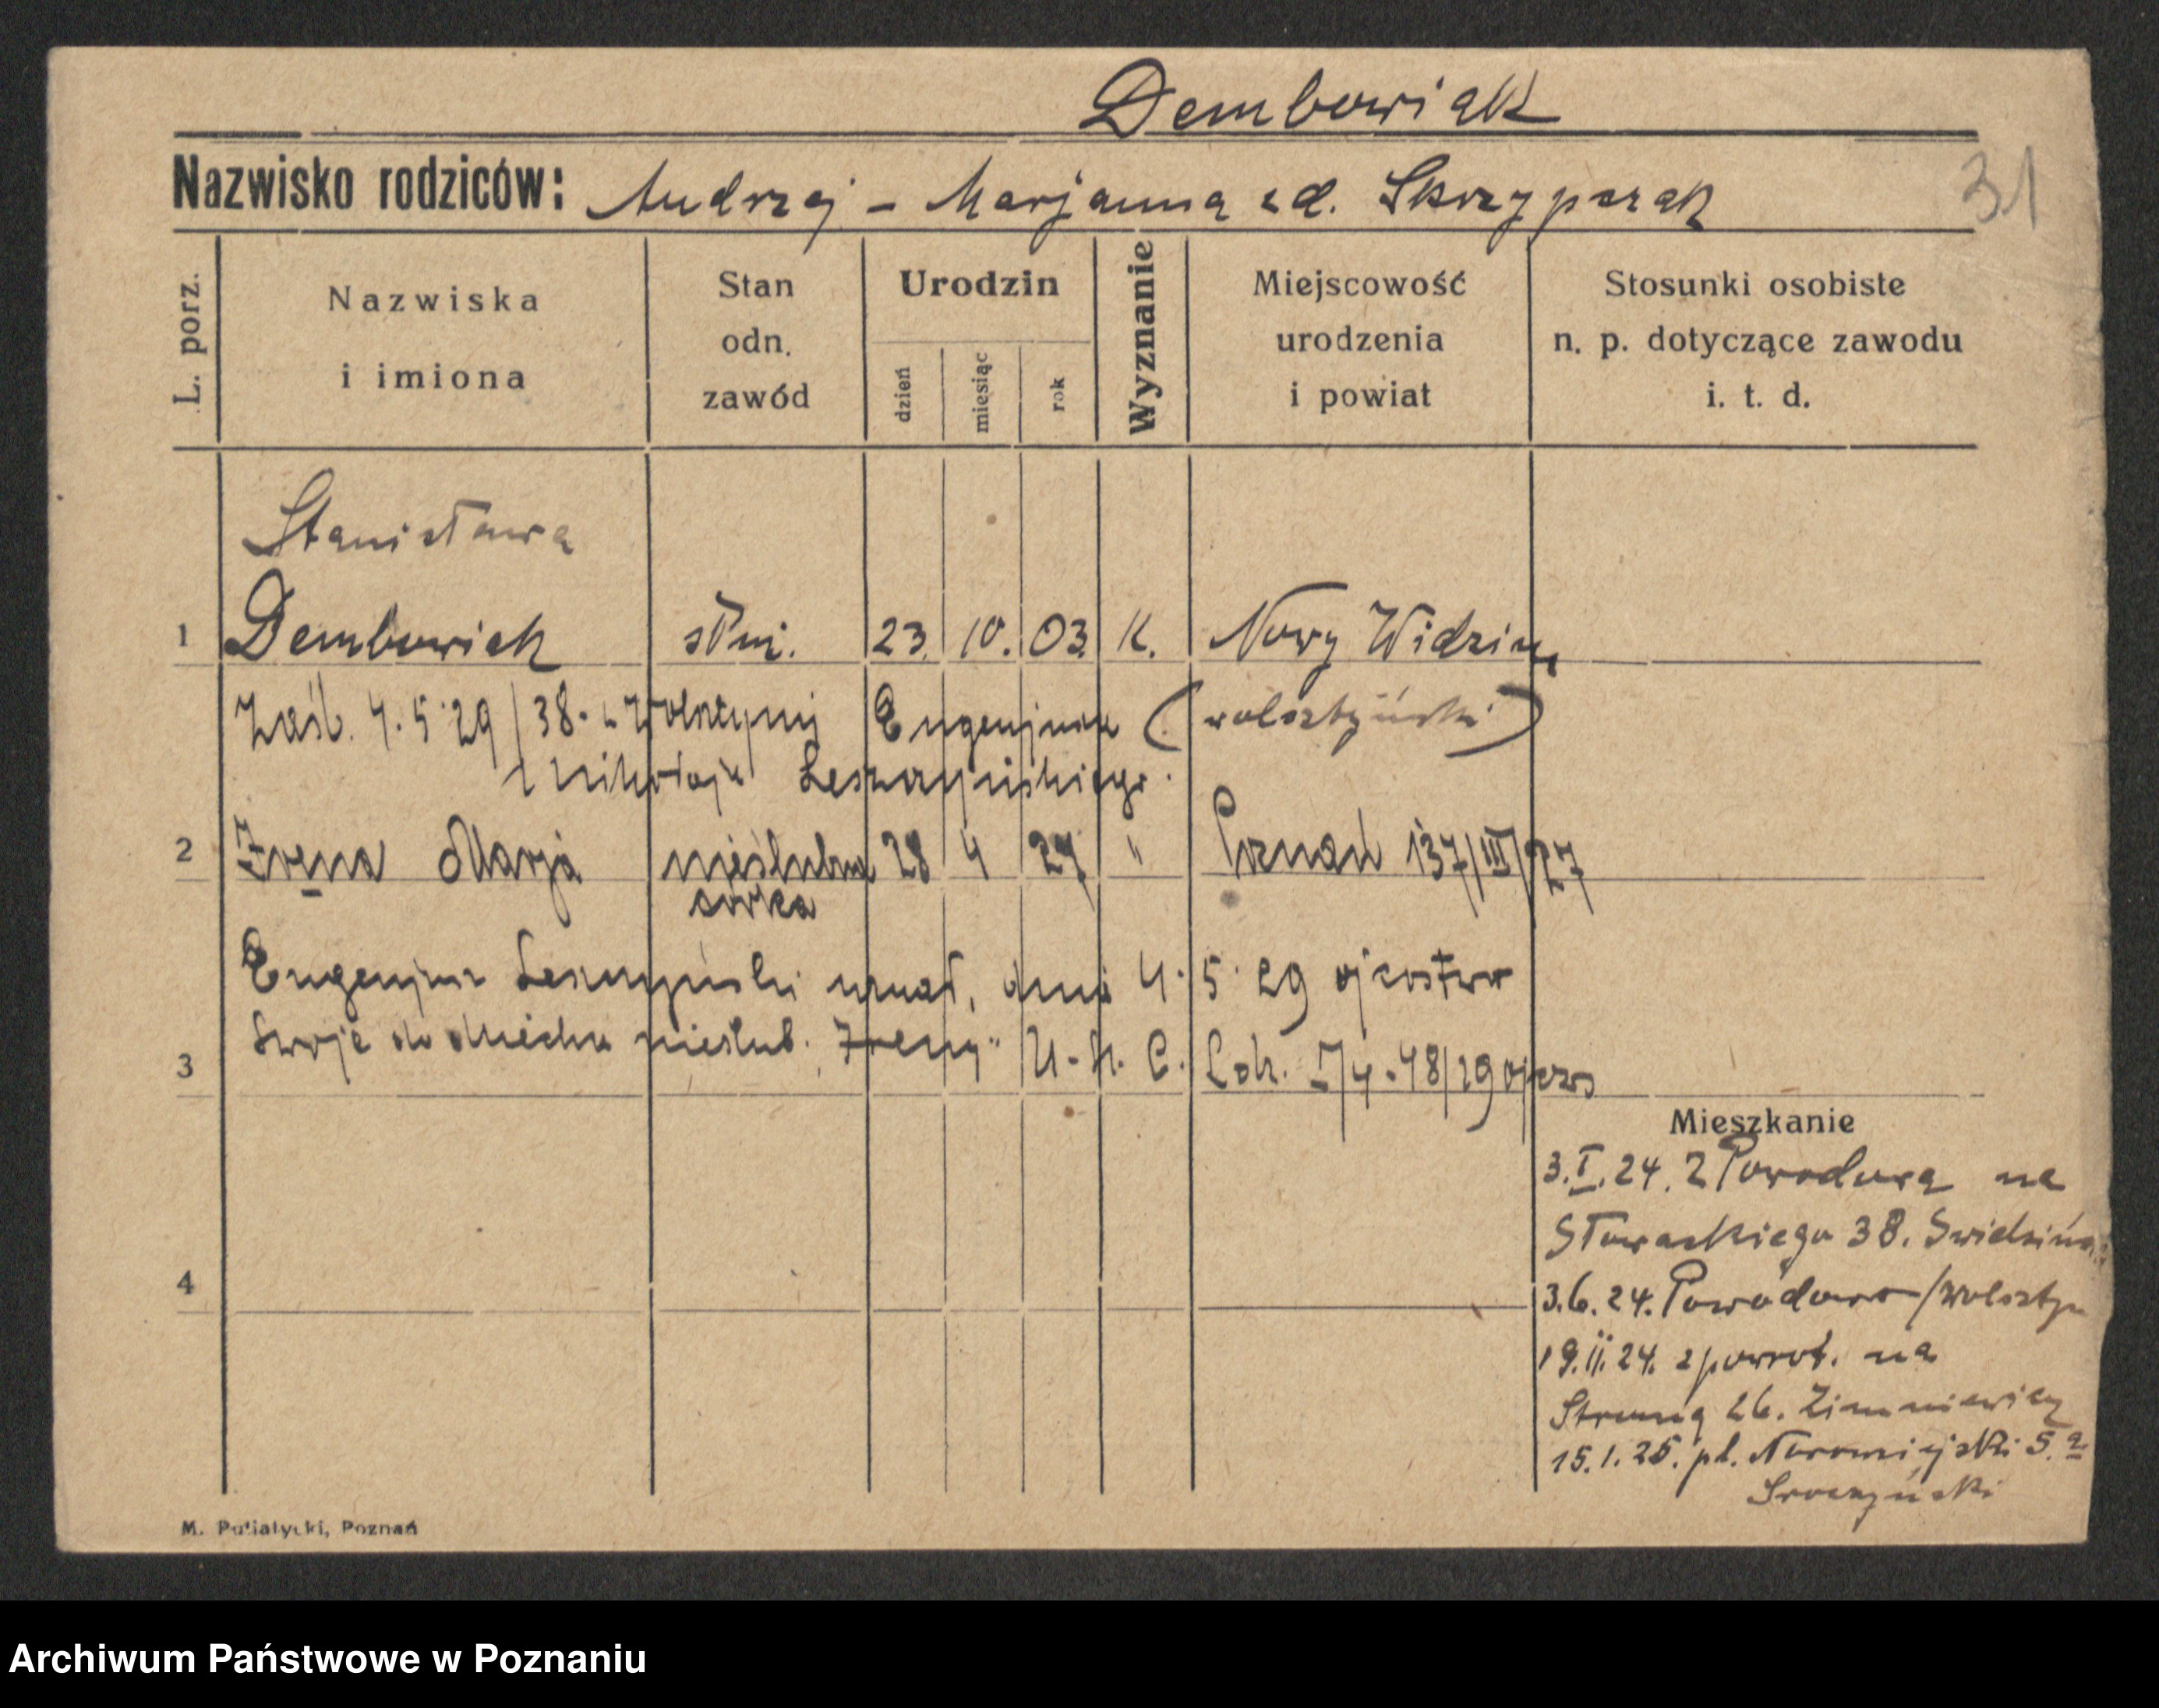 Dembowiak
Nazwisko rodziców: Andrzej - Marjanna zd. Skrzypczak
31
L. porz.
Nazwiska
i imiona
Stan
odn.
zawód
Urodzin
dzień
miesiąc
rok
Wyznanie
Miejscowość
urodzenia
i powiat
Stosunki osobiste
n. p. dotyczące zawodu
i. t. d.
Stanisława
1 Dembowiak służ. 23. 10. 03. K. Nowy Widzim
Zaśl. 4.5.29 / 38. Eugenjusz (wolsztyński)
Mikołaja Leszczyńskiego.
2 Irena Marja nieślubna 28 4 27 " Poznań 137/III/27
córka
Eugenjusz Leszczyński uznał, dnia 4. 5. 29 ojcostwo
3 swoje do dziecka nieślub. "Ireny" U. S. C.
Mieszkanie
3.I.24. z Powodowa na
Słowackiego 38.
3.6.24. Powodowo /wolsztyn
19.II.24. zpowrot. na
Strumą 26. Zimniewicz
15.1.25. pl. Nowomiejski 5.a
Sroczyński
4
M. Putiatycki, Poznań
Archiwum Państwowe w Poznaniu